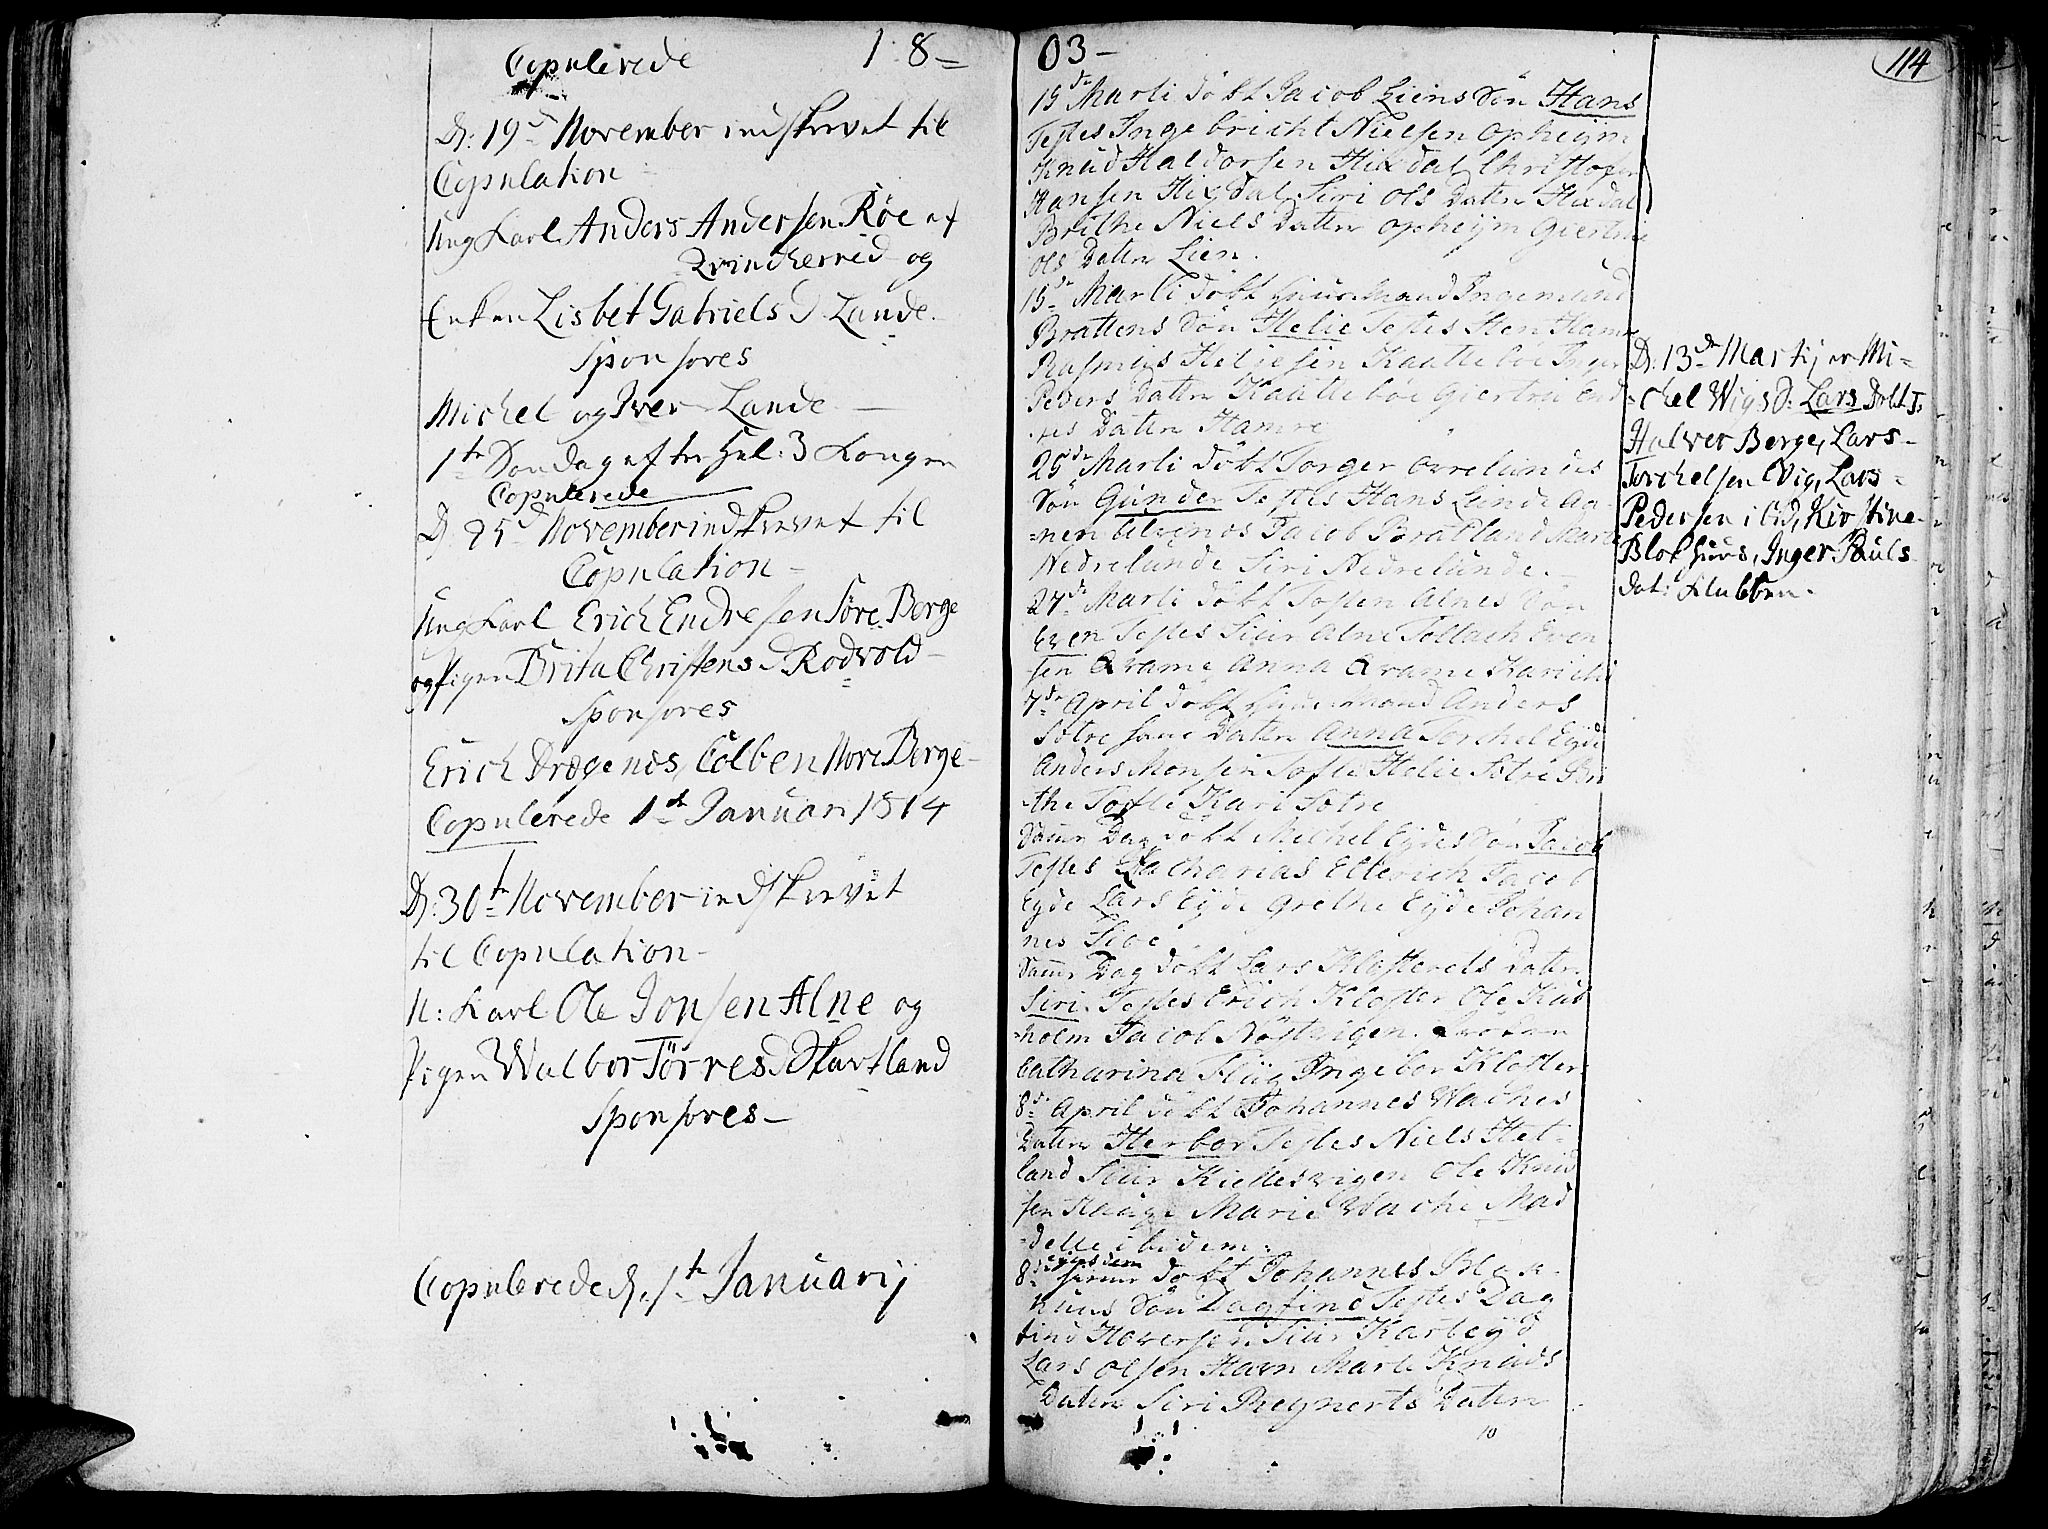 Copulerede 1:8=
D: 19de November indskrevet til
Copulation
Ung Karl Anders Andersen Røe af
Qvindherrid og
Enken Lisbet Gabriels D. Lande.
Sponsores
Michel og Iver Lande
1te Søndag efter Hel: 3 Konger
Copulerede
D: 25d November indskrevet til
Copulation
Ung Karl Erich Endresen Søre Berge
og Pigen Brita Christens d Rodvold
Sponsores
Erich Drægenes, Colben Nore Berge
Copulerede 1de Januari 1814
D: 30te November indskrevet
til Copulation
U: Karl Ole Jonsen Alne og
Pigen Walbor Törres d Skartland
Sponsores
Copulerede d. 1te Januarij
03- 114
15de Marti døbt Jacob Liens Søn Hans
Testes Ingebricht Nielsen Opheijm
Knud Haldorsen Hixdal Christopher
Hansen Hixdal Siri Ols Datter Hixdal
Brithe Niels Datter Opheijm Giertrue
Ols Datter Lien.
15de Marti døbt Huusmand Ingemund
Brattens Søn Helie Testes Sten Hamre
Rasmus Heliesen Kaattebøe Inger
Peders Datter Kaattebøe Giertru End
res Datter Hamre
25de Marti døbt Torger Orrelundes
Søn Gunder Testes Hans Lunde Aa-
nen Elvenes Jacob Bratland Marte
Nedrelunde Siri Nedrelunde.
27de Marti døbt Tosten Alnes Søn
Even Testes Siur Alne Tollach Even
sen Qvame Anna Qvame Kari
7de April døbt Huusmand Anders
Sotre sone Daten Anna Torchel Eyde
Anders Monsen Tofte Helie Sotre Bri
the Tofte Kari Sotre
Samme Dag døbt Michel Eydes Søn Jacob
Testes Zacharias Ellerich Jacob
Eyde Lars Eyde Grethe Eyde Johan
nes
Samme Dag døbt Lars Klosterets Datter
Siri. Testes Erich Kloster Ole Kub
holm Jacob Nøstvigen.
Catharina Flüg Ingebor Kloster
8de April døbt Johannes Waches
Datter Herbor Testes Niels Het-
land Siur Kiellesvigen Ole Knud
sen Hauge Marie Wache Mad
delle ibidem.
8de ejusdem døbt Johannes Blok-
huus Søn Dagfind Testes Dag
find Hoversen Siur Karteyd
Lars Olsen Havn Marte Knuds
Datter Siri Regnerts Datter
D: 13de Martij er Mi-
chel Wigs S: Lars Døbt T:
Halver Berge, Lars
Torchelsen Vig, Lars
Pedersen ibd, Kirstine
Blokhuus, Inger Pauls
Dat: Klubben.